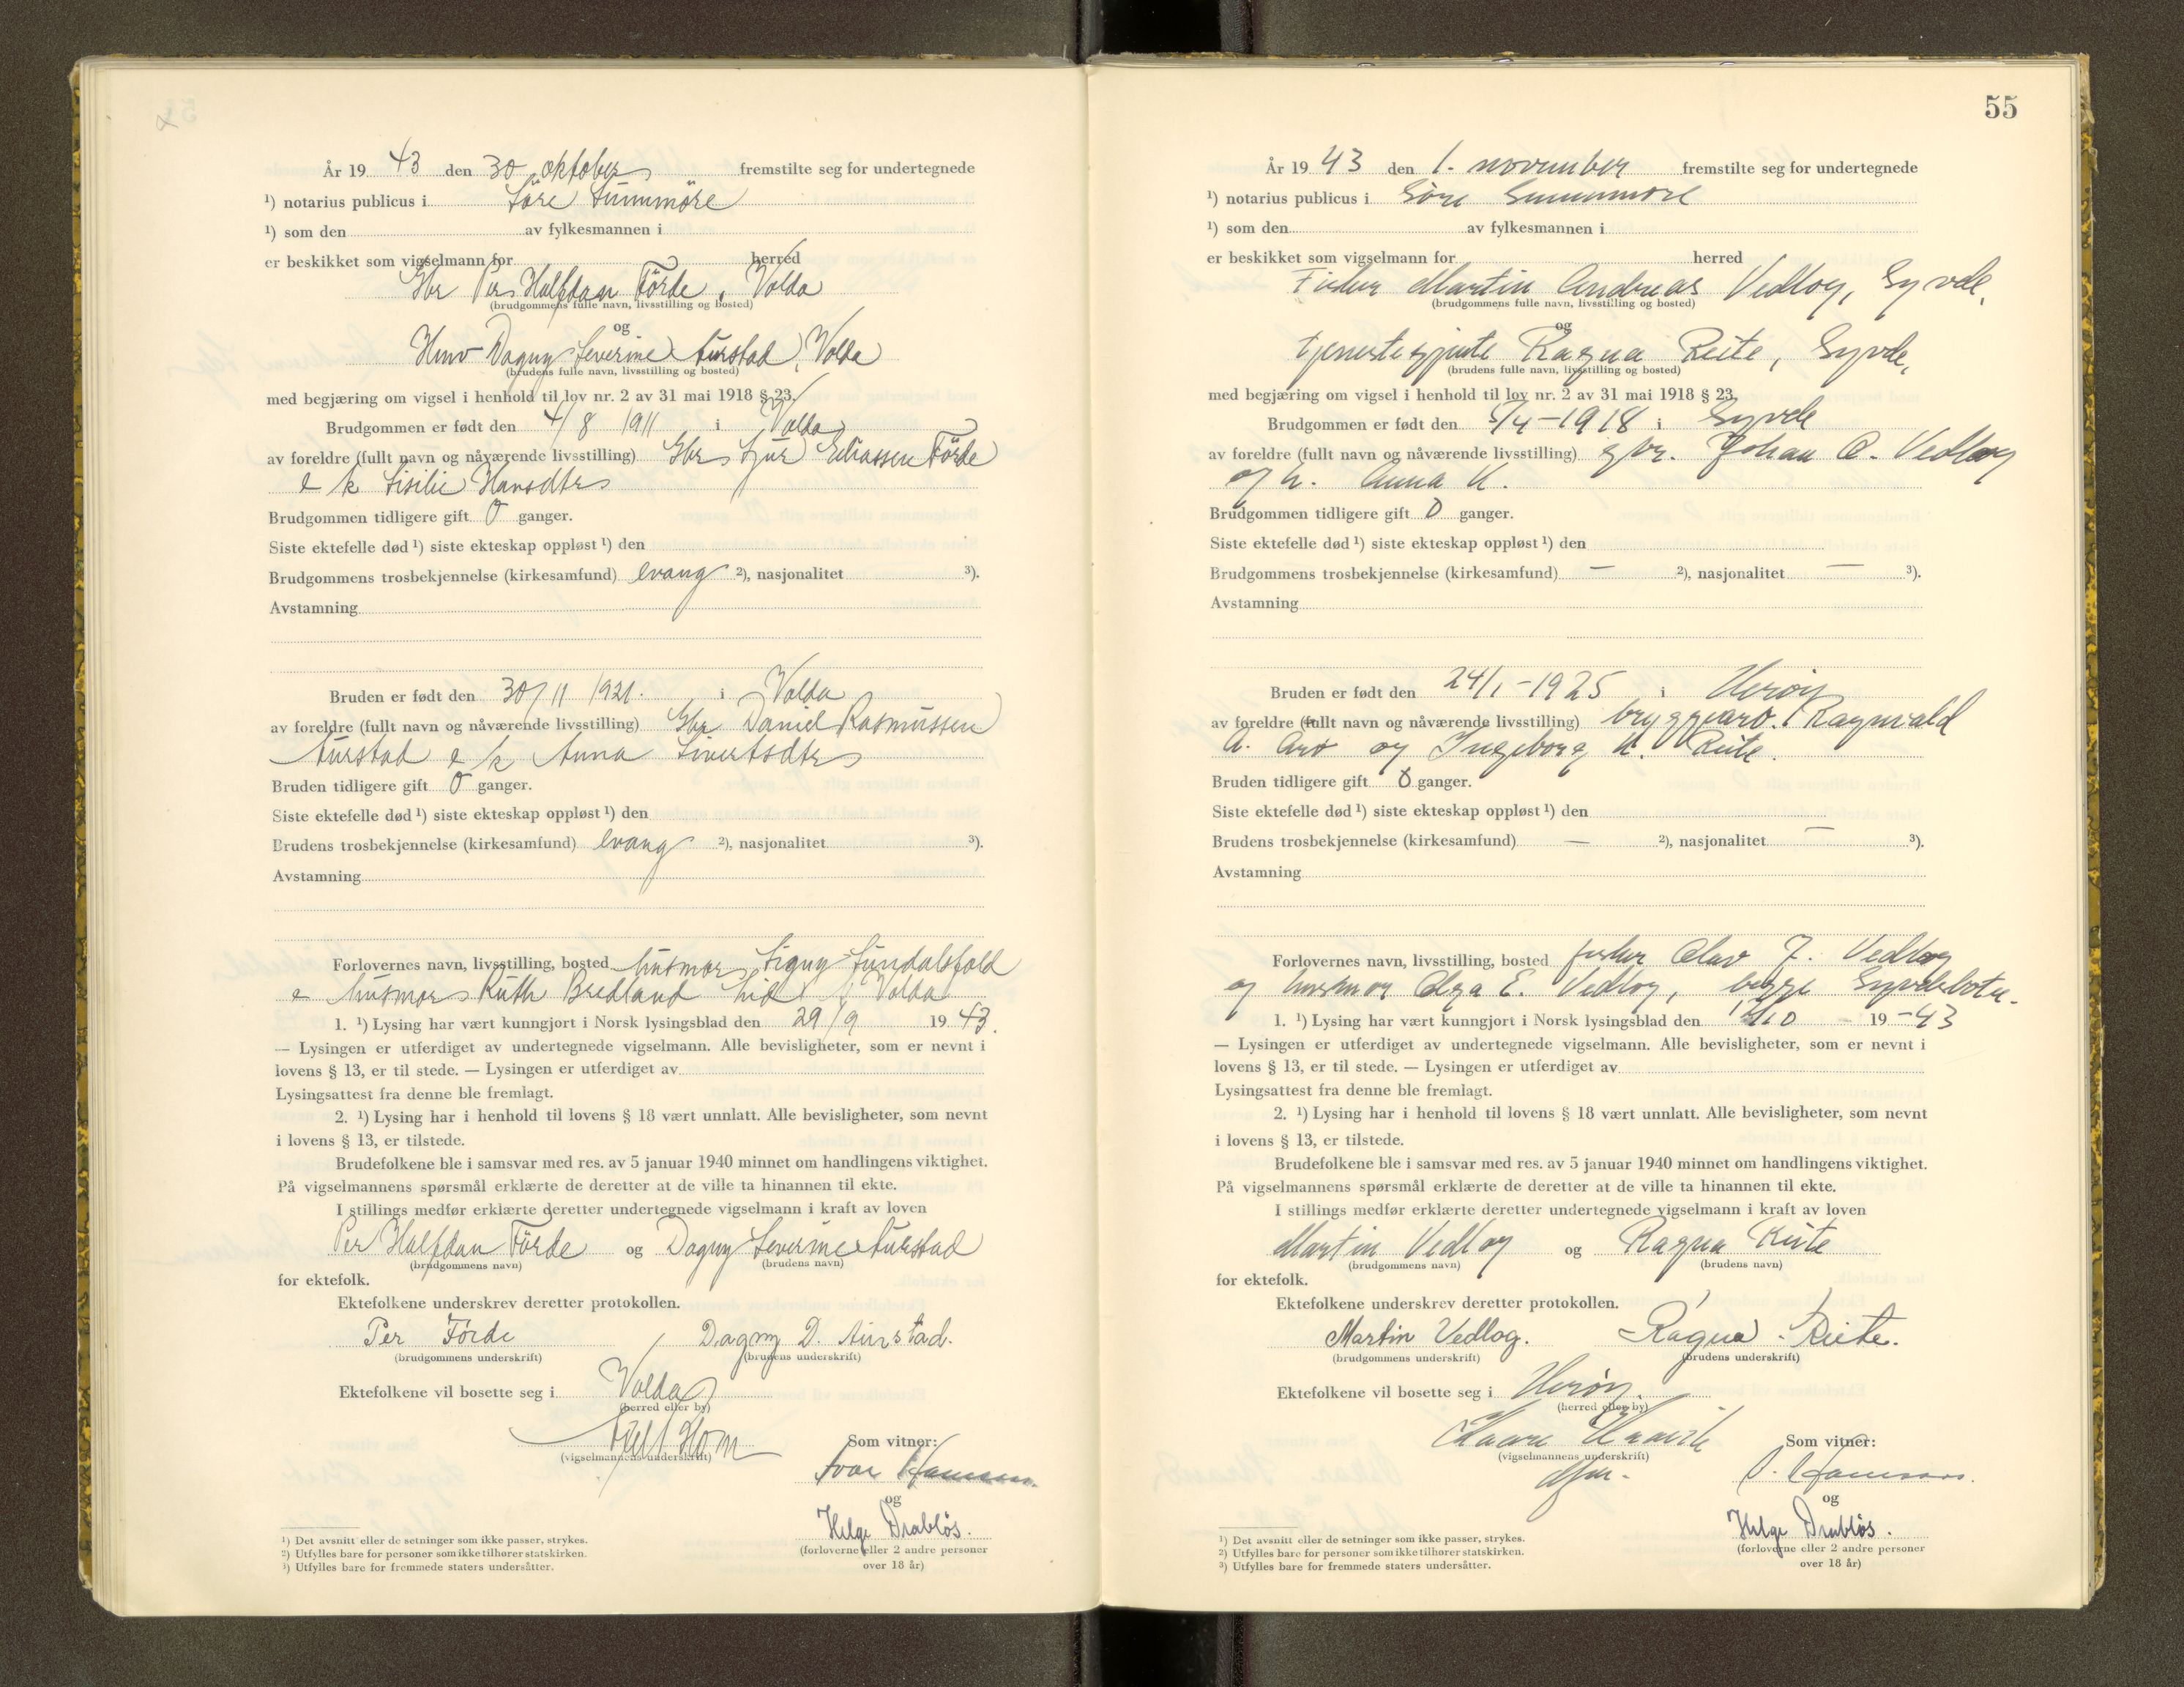 År 19 43 den 30 oktober fremstilte seg for undertegnede
¹) notarius publicus i Søre Sunnmøre
¹) som den av fylkesmannen i
er beskikket som vigselmann for herred
Gbr Per Halfdan Förde, Volda
(brudgommens fulle navn, livsstilling og bosted)
og
Dagny Severine Aurstad, Volda
(brudens fulle navn, livsstilling og bosted)
med begjæring om vigsel i henhold til lov nr. 2 av 31 mai 1918 § 23.
Brudgommen er født den 4/8 1911 i Volda
av foreldre (fullt navn og nåværende livsstilling) Gbr Sjur Eliassen Förde
e k Sisilie Hansdtr
Brudgommen tidligere gift 0 ganger.
Siste ektefelle død ¹) siste ekteskap oppløst ¹) den
Brudgommens trosbekjennelse (kirkesamfund) evang ²), nasjonalitet ³).
Avstamning
Bruden er født den 30/11 1921. i Volda
av foreldre (fullt navn og nåværende livsstilling) Gbr Daniel Rasmussen
Aurstad e k Anna Sivertsdtr
Bruden tidligere gift 0 ganger.
Siste ektefelle død ¹) siste ekteskap oppløst ¹) den
Brudens trosbekjennelse (kirkesamfund) evang ²), nasjonalitet ³).
Avstamning
Forlovernes navn, livsstilling, bosted husmor Signy Sundalsfold
e husmor Ruth Bredland Lid Volda
1. ¹) Lysing har vært kunngjort i Norsk lysingsblad den 29/9 19 43.
— Lysingen er utferdiget av undertegnede vigselmann. Alle bevisligheter, som er nevnt i
lovens § 13, er til stede. — Lysingen er utferdiget av
Lysingsattest fra denne ble fremlagt.
2. ¹) Lysing har i henhold til lovens § 18 vært unnlatt. Alle bevisligheter, som nevnt
i lovens § 13, er tilstede.
Brudefolkene ble i samsvar med res. av 5 januar 1940 minnet om handlingens viktighet.
På vigselmannens spørsmål erklærte de deretter at de ville ta hinannen til ekte.
I stillings medfør erklærte deretter undertegnede vigselmann i kraft av loven
Per Halfdan Förde og Dagny Severine Aurstad
(brudgommens navn) (brudens navn)
for ektefolk.
Ektefolkene underskrev deretter protokollen.
Per Förde / Dagny D. Aurstad.
(brudgommens underskrift) (brudens underskrift)
Ektefolkene vil bosette seg i Volda
(herred eller by)
Som vitner:
(vigselmannens underskrift)
Ivar Hamsen
og
Helge Drabløs.
(forloverne eller 2 andre personer
over 18 år)
¹) Det avsnitt eller de setninger som ikke passer, strykes.
²) Utfylles bare for personer som ikke tilhører statskirken.
³) Utfylles bare for fremmede staters undersåtter.
55
År 19 43 den 1. november fremstilte seg for undertegnede
¹) notarius publicus i Søre Sunnmøre
¹) som den av fylkesmannen i
er beskikket som vigselmann for herred
Fisker Martin Andreas Vedlog, Syvde,
(brudgommens fulle navn, livsstilling og bosted)
og
tjenestegjente Ragna Reite, Syvde,
(brudens fulle navn, livsstilling og bosted)
med begjæring om vigsel i henhold til lov nr. 2 av 31 mai 1918 § 23.
Brudgommen er født den 5/4-1918 i Syvde
av foreldre (fullt navn og nåværende livsstilling) gbr. Johan O. Vedlog
og h. Anna K.
Brudgommen tidligere gift 0 ganger.
Siste ektefelle død ¹) siste ekteskap oppløst ¹) den
Brudgommens trosbekjennelse (kirkesamfund) — ²), nasjonalitet — ³).
Avstamning
Bruden er født den 24/1-1925 i Herøy
av foreldre (fullt navn og nåværende livsstilling) bryggearb. Ragnvald
A. Arø og Ingeborg K. Reite.
Bruden tidligere gift 0 ganger.
Siste ektefelle død ¹) siste ekteskap oppløst ¹) den
Brudens trosbekjennelse (kirkesamfund) — ²), nasjonalitet — ³).
Avstamning
Forlovernes navn, livsstilling, bosted fisker Olav J. Vedlog
og husmor Olga E. Vedlog, begge Syvdebotn.
1. ¹) Lysing har vært kunngjort i Norsk lysingsblad den 19 -43
— Lysingen er utferdiget av undertegnede vigselmann. Alle bevisligheter, som er nevnt i
lovens § 13, er til stede. — Lysingen er utferdiget av
Lysingsattest fra denne ble fremlagt.
2. ¹) Lysing har i henhold til lovens § 18 vært unnlatt. Alle bevisligheter, som nevnt
i lovens § 13, er tilstede.
Brudefolkene ble i samsvar med res. av 5 januar 1940 minnet om handlingens viktighet.
På vigselmannens spørsmål erklærte de deretter at de ville ta hinannen til ekte.
I stillings medfør erklærte deretter undertegnede vigselmann i kraft av loven
Martin Vedlog og Ragna Reite
(brudgommens navn) (brudens navn)
for ektefolk.
Ektefolkene underskrev deretter protokollen.
Martin Vedlog. Ragna Reite.
(brudgommens underskrift) (brudens underskrift)
Ektefolkene vil bosette seg i Herøy.
(herred eller by)
Som vitner:
(vigselmannens underskrift)
og
Helge Drabløs.
(forloverne eller 2 andre personer
over 18 år)
¹) Det avsnitt eller de setninger som ikke passer, strykes.
²) Utfylles bare for personer som ikke tilhører statskirken.
³) Utfylles bare for fremmede staters undersåtter.